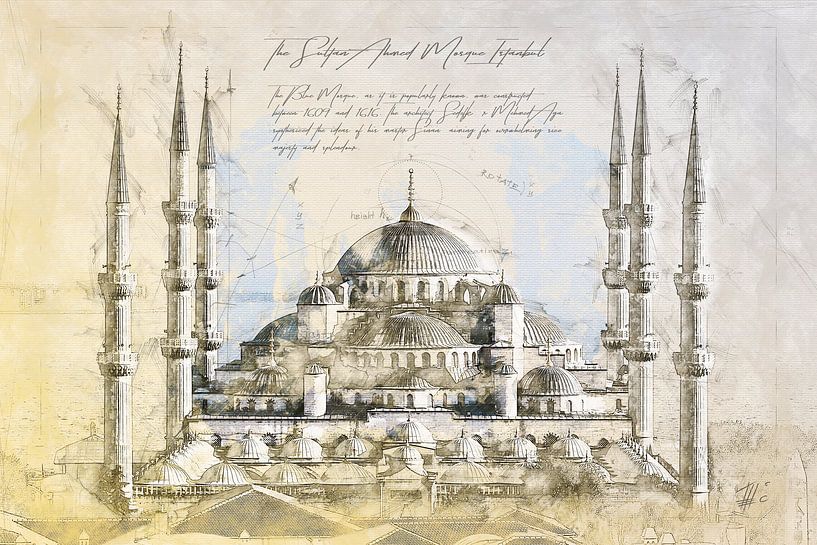 The Sultan Ahmed Mosque Istanbul
The Blue Mosque, as it is popularly known, was constructed
between 1609 and 1616. The architect Sedefk r Mehmed Aga
synthesized the ideas of his master Sinan aiming for overwhelming size
majesty and splendour
ROTATE
x
y
x
y
z
height